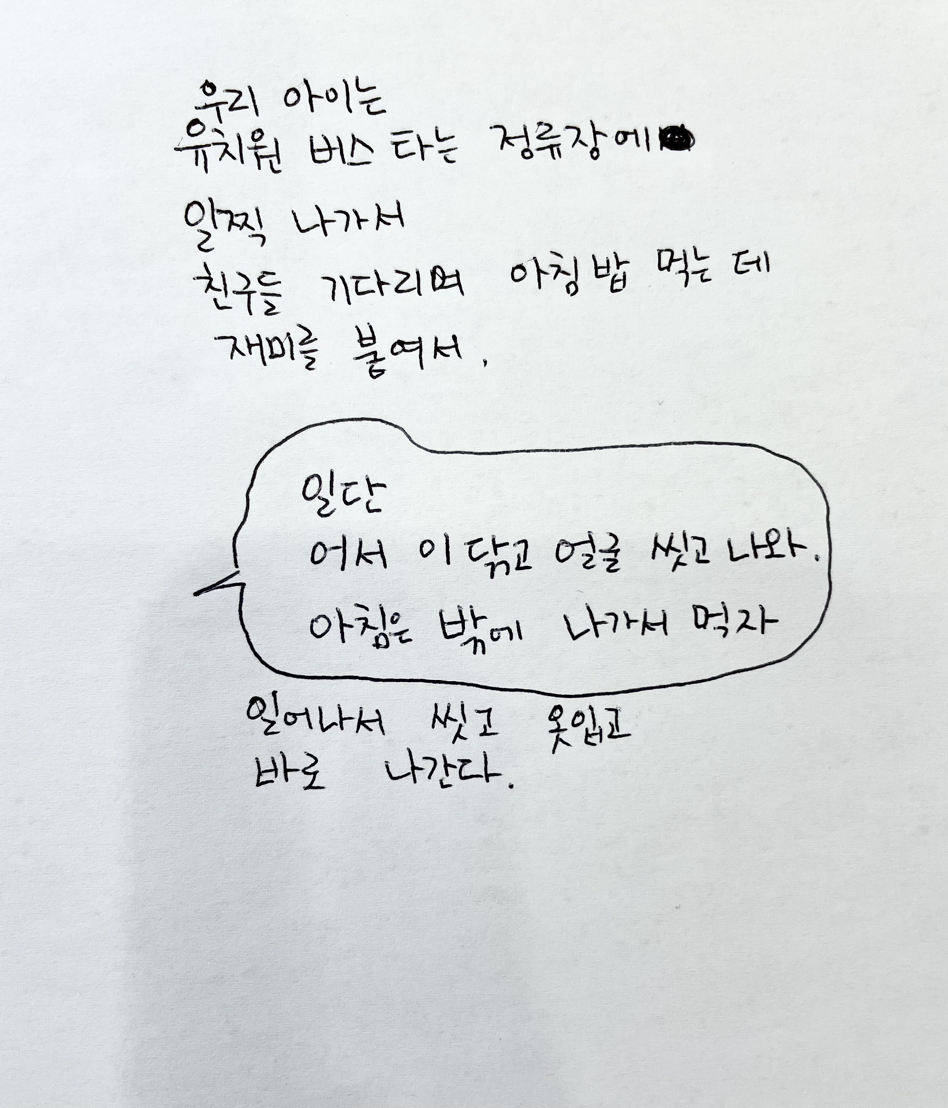 우리 아이는
유치원 버스 타는 정류장에
일찍 나가서
친구들 기다리며 아침밥 먹는 데
재미를 붙여서.
일단
어서 이 닦고 얼굴 씻고 나와.
아침은 밖에 나가서 먹자
일어나서 씻고 옷입고
바로 나간다.